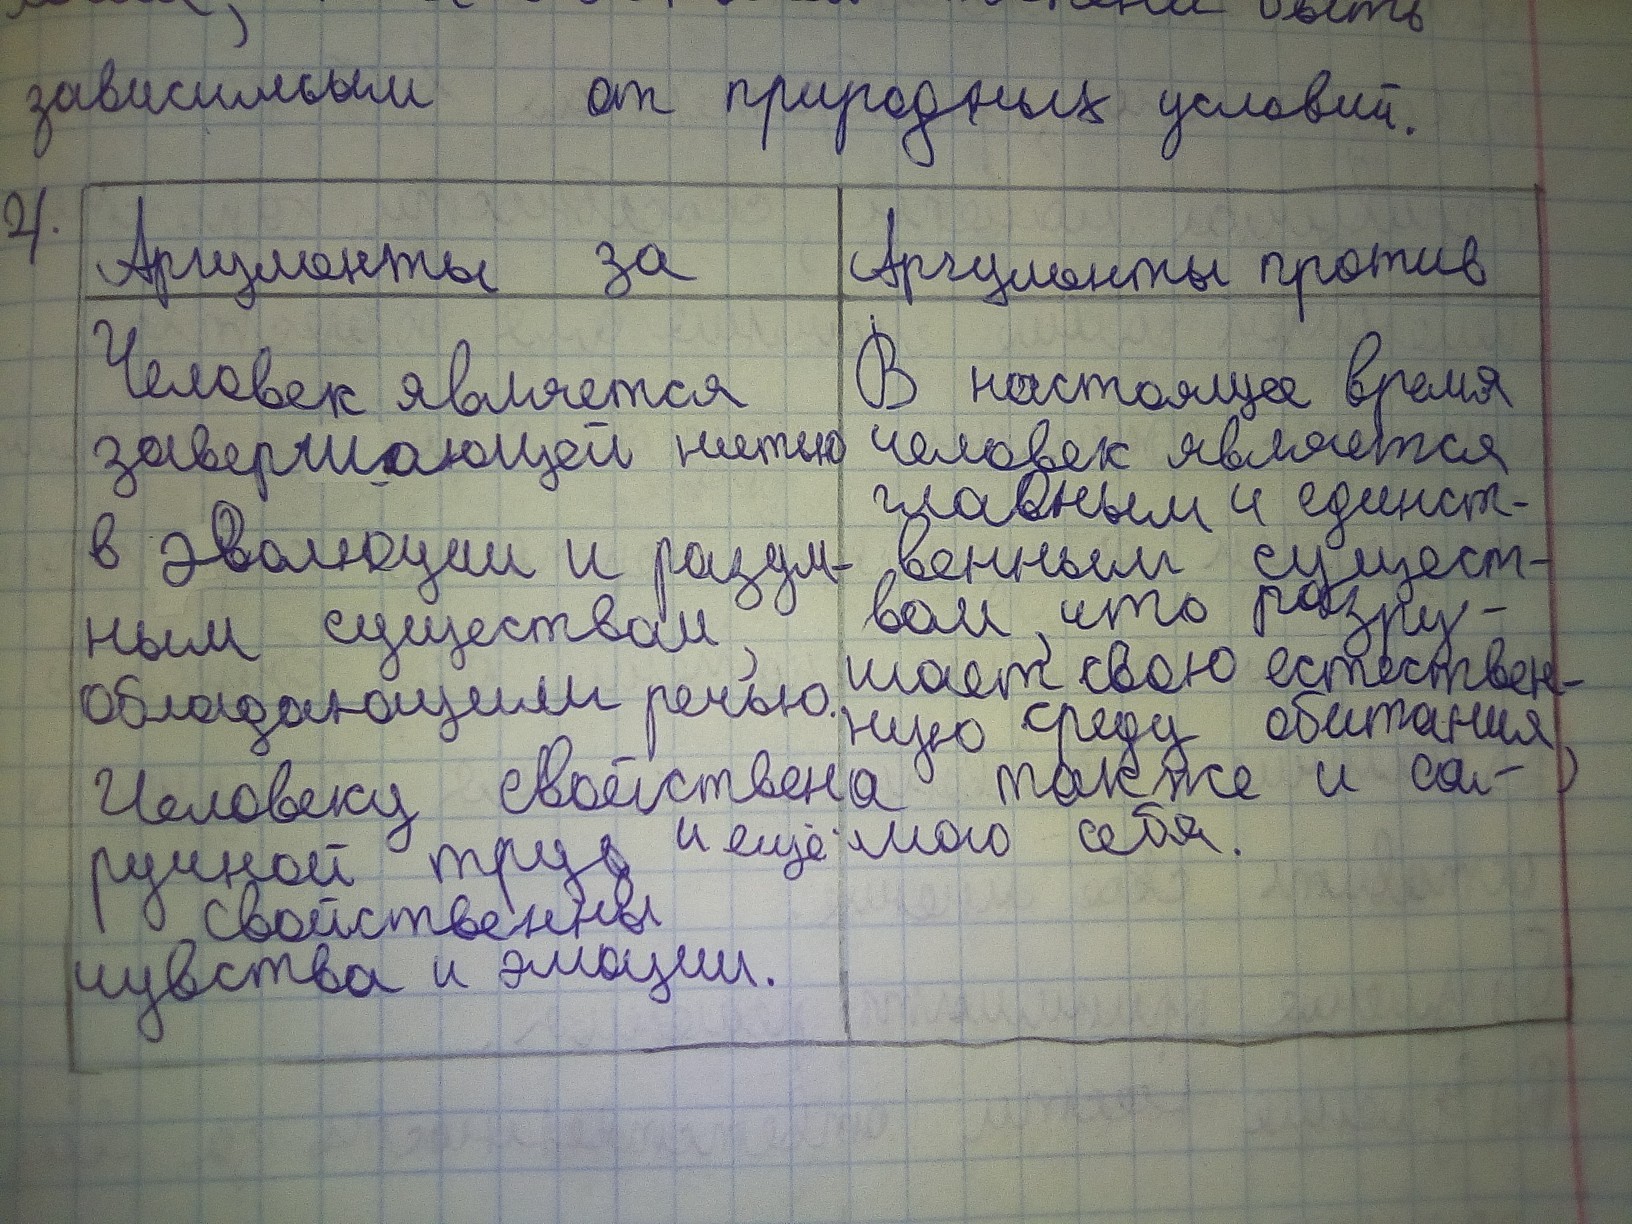 быть
зависимым от природных условий.
2.
Аргументы за
Аргументы против
Человек является
завершающей
в эволюции и разум-
ным существом,
обладающим речью.
Человеку свойствена
ручной труд и ещё
свойственны
чувства и эмоции.
В настоящее время
человек является
главным и единст-
венным сущест-
вом, что разру-
шает свою естествен-
ную среду обитания,
также и са-
мого себя.